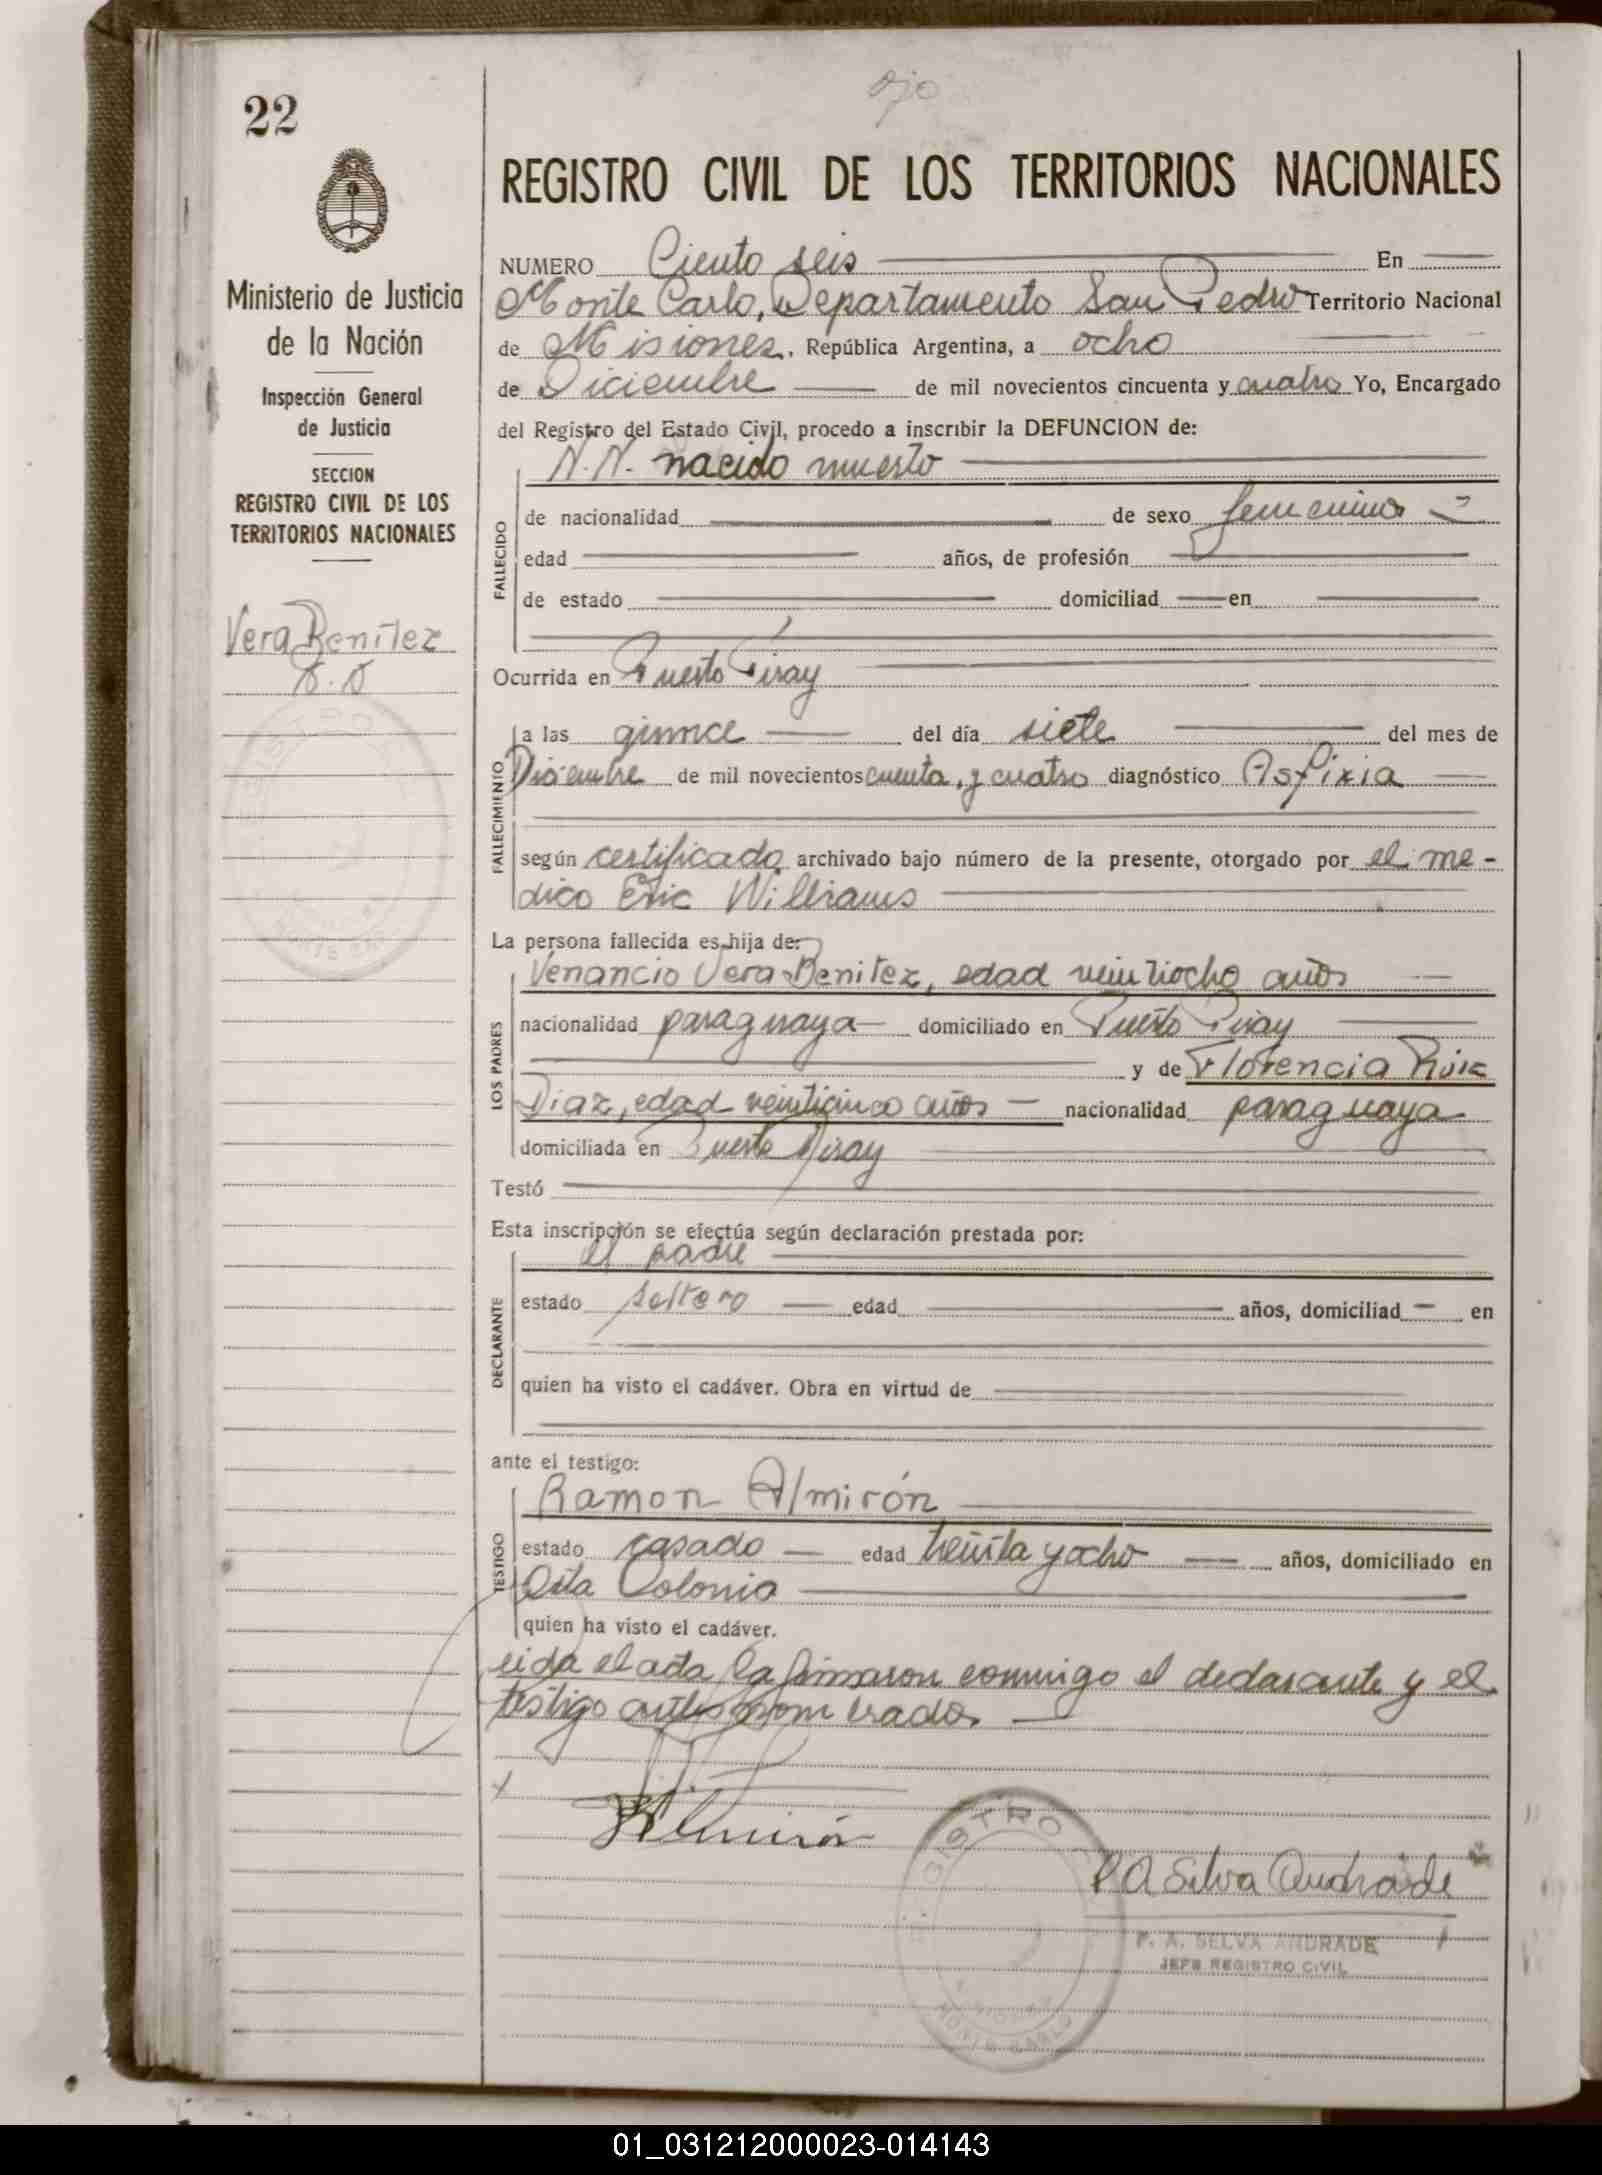 ojo
22
REGISTRO CIVIL DE LOS TERRITORIOS NACIONALES
Ministerio de Justicia
de la Nación
Inspección General
de Justicia
SECCION
REGISTRO CIVIL DE LOS
TERRITORIOS NACIONALES
Vera Benitez
NUMERO Ciento seis En
Monte Carlo, Departamento San Pedro Territorio Nacional
de Misiones, República Argentina, a ocho
de Diciembre de mil novecientos cincuenta y cuatro Yo, Encargado
del Registro del Estado Civil, procedo a inscribir la DEFUNCION de:
N.N. nacido muerto
FALLECIDO
de nacionalidad de sexo femenino
edad años, de profesión
de estado domiciliad en
Ocurrida en Puerto Piray
FALLECIMIENTO
a las quince del día siete del mes de
Diciembre de mil novecientos cuenta, y cuatro diagnóstico Asfixia
según certificado archivado bajo número de la presente, otorgado por el me-
dico Eric Williams
La persona fallecida es hija de:
LOS PADRES
Venancio Vera Benitez, edad veintiocho años
nacionalidad paraguaya domiciliado en Puerto Piray
y de Florencia Ruiz
Diaz, edad veinticinco años nacionalidad paraguaya
domiciliada en Puerto Piray
Testó
Esta inscripción se efectúa según declaración prestada por:
DECLARANTE
el padre
estado soltero edad años, domiciliad en
quien ha visto el cadáver. Obra en virtud de
ante el testigo:
TESTIGO
Ramon Almirón
estado casado edad treinta y ocho años, domiciliado en
esta Colonia
quien ha visto el cadáver.
Leida el acta, la firmaron conmigo el declarante y el
testigo antes nombrado.
Almirón
REGISTRO
MISIONES
MONTE CARLO
P A Silva Andrade
P. A. SELVA ANDRADE
JEFE REGISTRO CIVIL
01_031212000023-014143